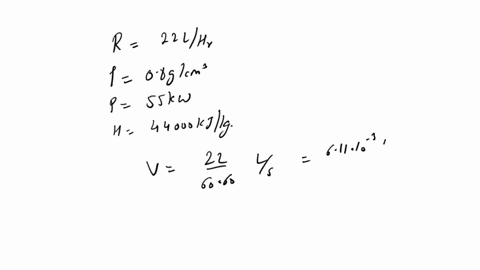 R = 22L/Hr
ρ = 0.8g/cm³
P = 55kW
H = 44000kJ/kg.
V = 22/60·60 L/s = 6.11·10⁻³